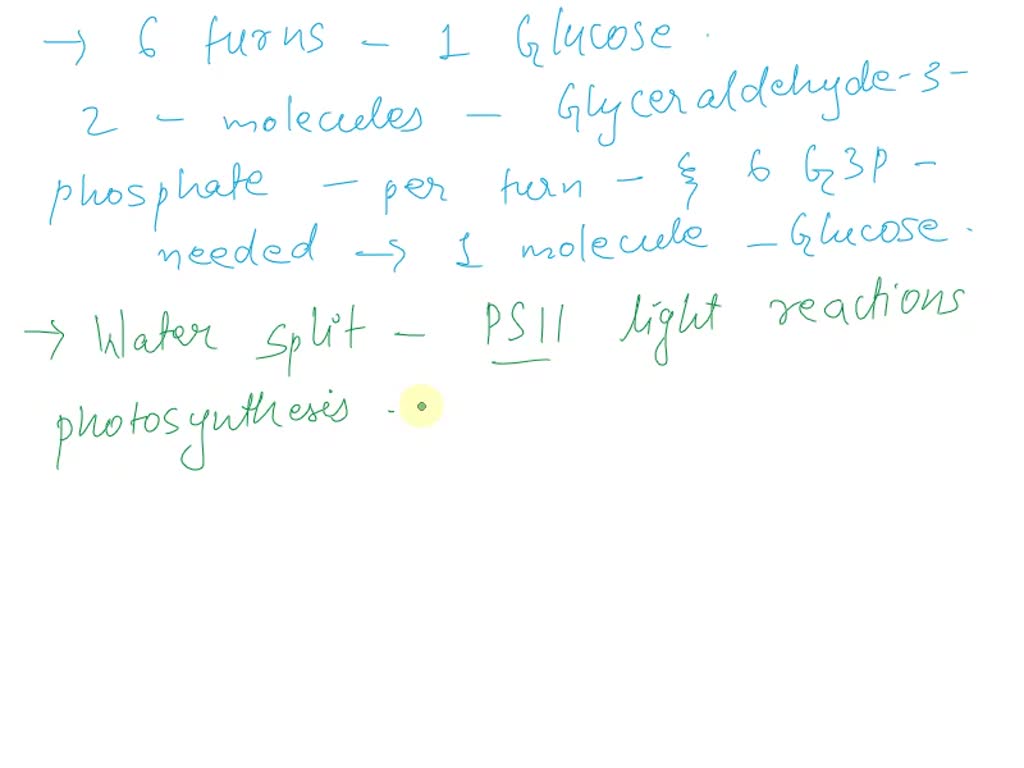 → 6 turns - 1 Glucose.
2 - molecules - Glyceraldehyde-3-
phosphate - per turn - & 6 G3P -
needed → 1 molecule - Glucose.
→ Water split - PSII light reactions
photosynthesis.